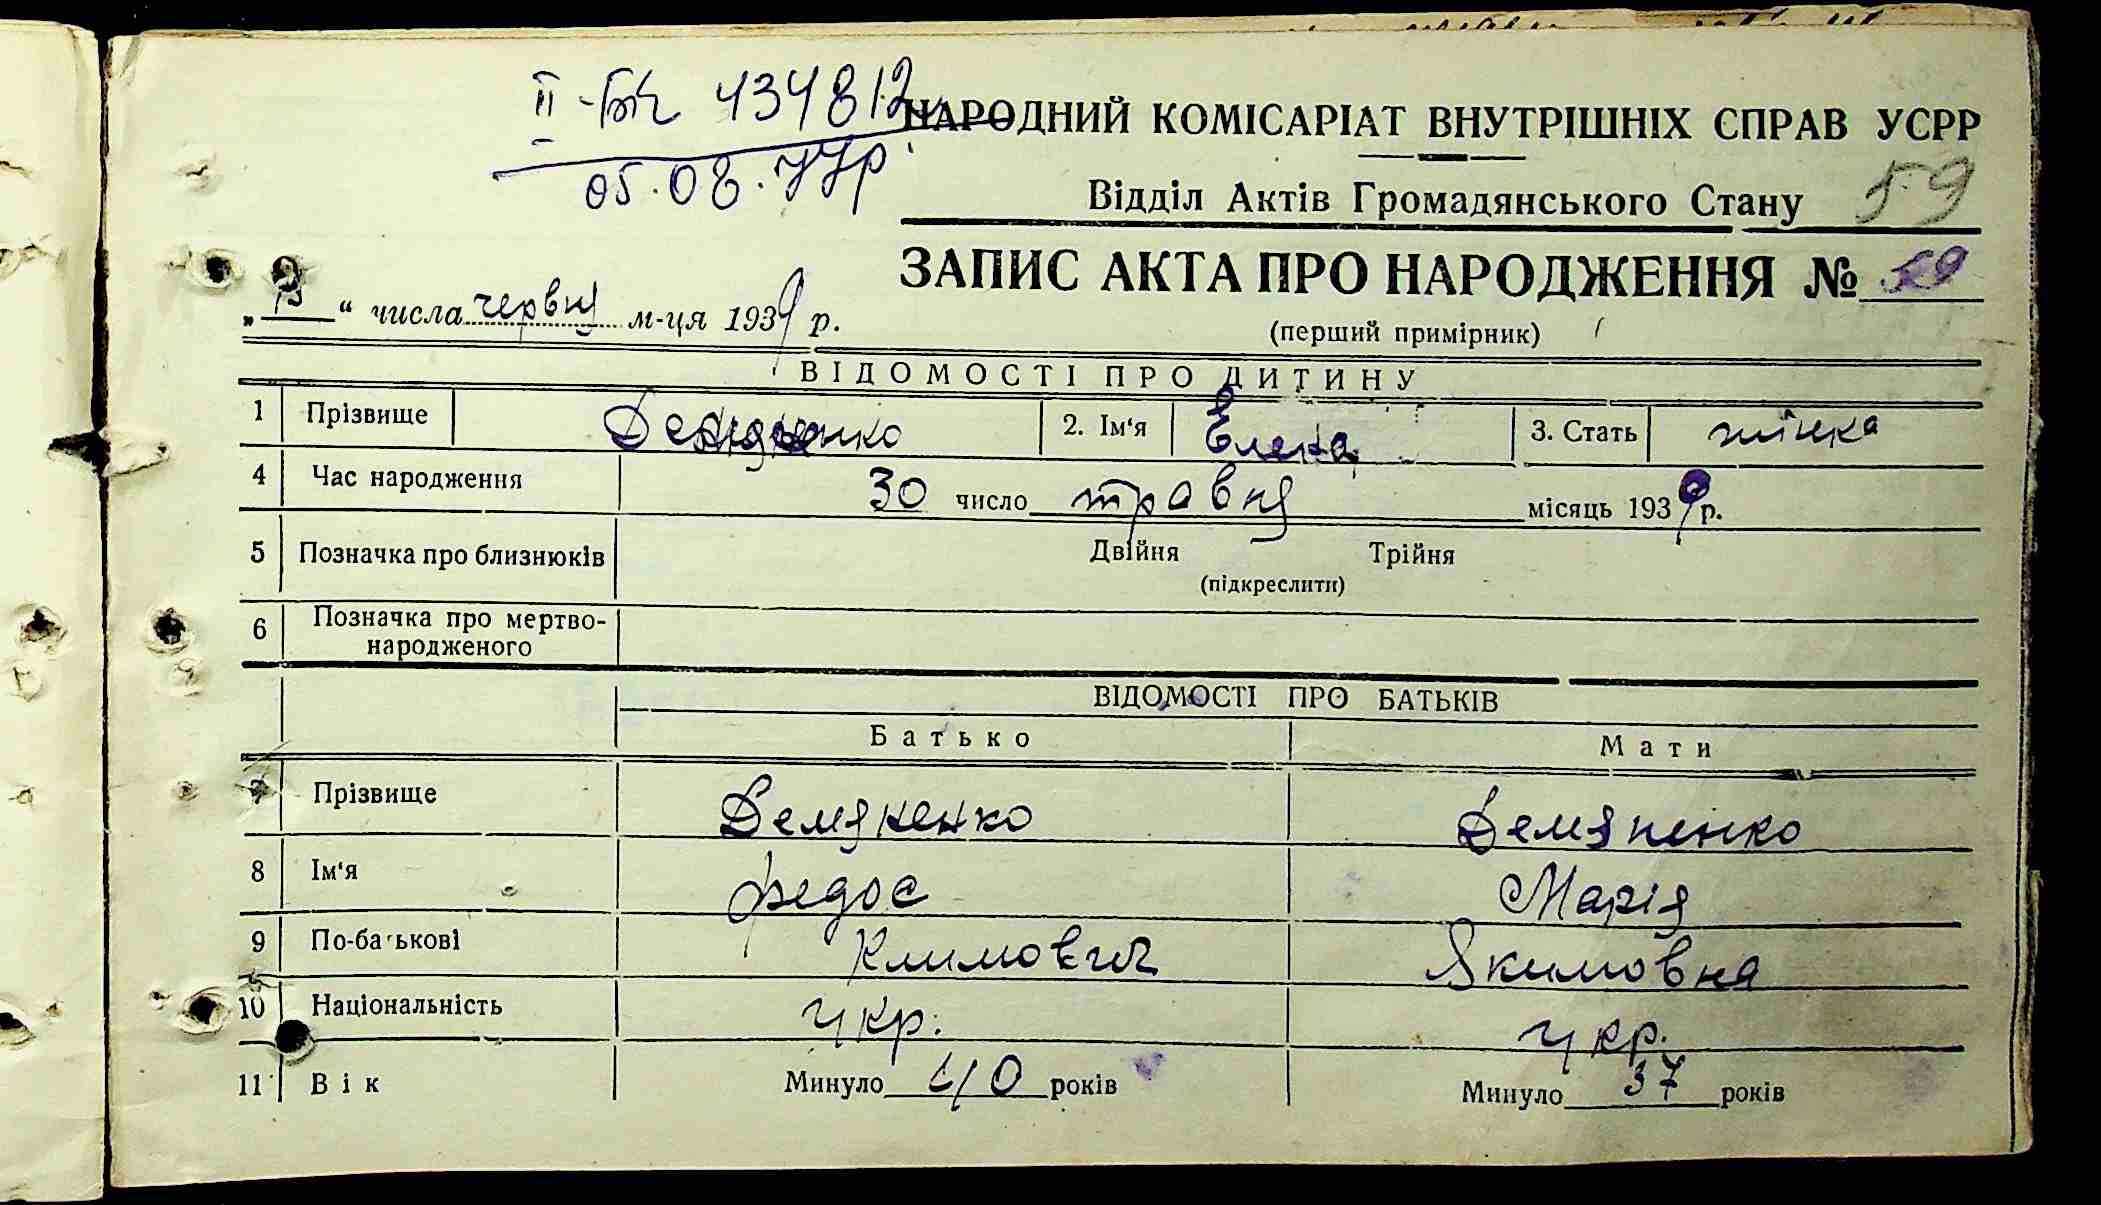 II-БК 434812
05.08.77р.
НАРОДНИЙ КОМІСАРІАТ ВНУТРІШНІХ СПРАВ УСРР
Відділ Актів Громадянського Стану 59
ЗАПИС АКТА ПРО НАРОДЖЕННЯ № 59
„ “ числа червня м-ця 1939 р.
(перший примірник)
ВІДОМОСТІ ПРО ДИТИНУ
1 Прізвище 2. Ім'я Елена 3. Стать жінка
4 Час народження 30 число травня місяць 1939 р.
5 Позначка про близнюків Двійня Трійня
(підкреслити)
6 Позначка про мертво-
народженого
ВІДОМОСТІ ПРО БАТЬКІВ
Батько Мати
7 Прізвище Демяненко Демяненко
8 Ім'я Федос Марія
9 По-батькові Климович Якимовна
10 Національність укр. укр.
11 Вік Минуло 40 років Минуло 37 років